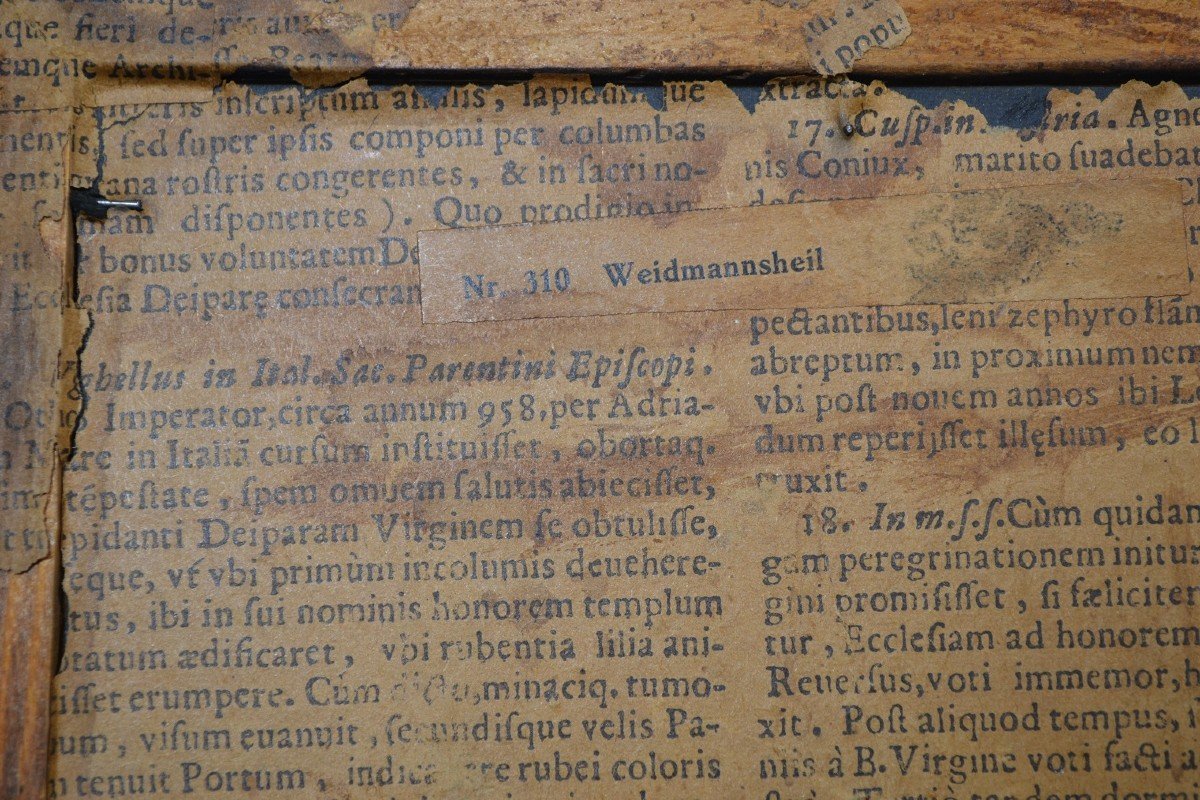 que fieri de-
emque Archi-
i popu
inscriptum animis, lapidumque
mentis, sed super ipsis componi per columbas
rana rostris congerentes, & in sacri no-
disponentes). Quo prodigio in
bonus voluntatem De
Ecclesia Deiparę consecran
Vghellus in Ital. Sac. Parentini Episcopi.
Otho Imperator, circa annum 958, per Adria-
Mare in Italiã cursum instituisset, obortaq.
tẽpestate, spem omnem salutis abiecisset,
pidanti Deiparam Virginem se obtulisse,
eque, vt vbi primùm incolumis deuehere-
tus, ibi in sui nominis honorem templum
ædificaret, vbi rubentia lilia ani-
isset erumpere. Cùm dictu, minaciq. tumo-
um, visum euanuit, secundisque velis Pa-
tenuit Portum, rubei coloris
xtracta.
17. Cusp. in. Agne
nis Coniux, marito suadebat
Nr. 310 Weidmannsheil
pectantibus, leni zephyro flãm
abreptum, in proximum nem
vbi post nouem annos ibi L
dum reperijsset illęsum, eo l
truxit.
18. In m.s.s. Cùm quidam
gam peregrinationem initus
gini promisisset, si fæliciter
tur, Ecclesiam ad honorem
Reuersus, voti immemor, h
xit. Post aliquod tempus,
niis à B. Virgine voti facti a